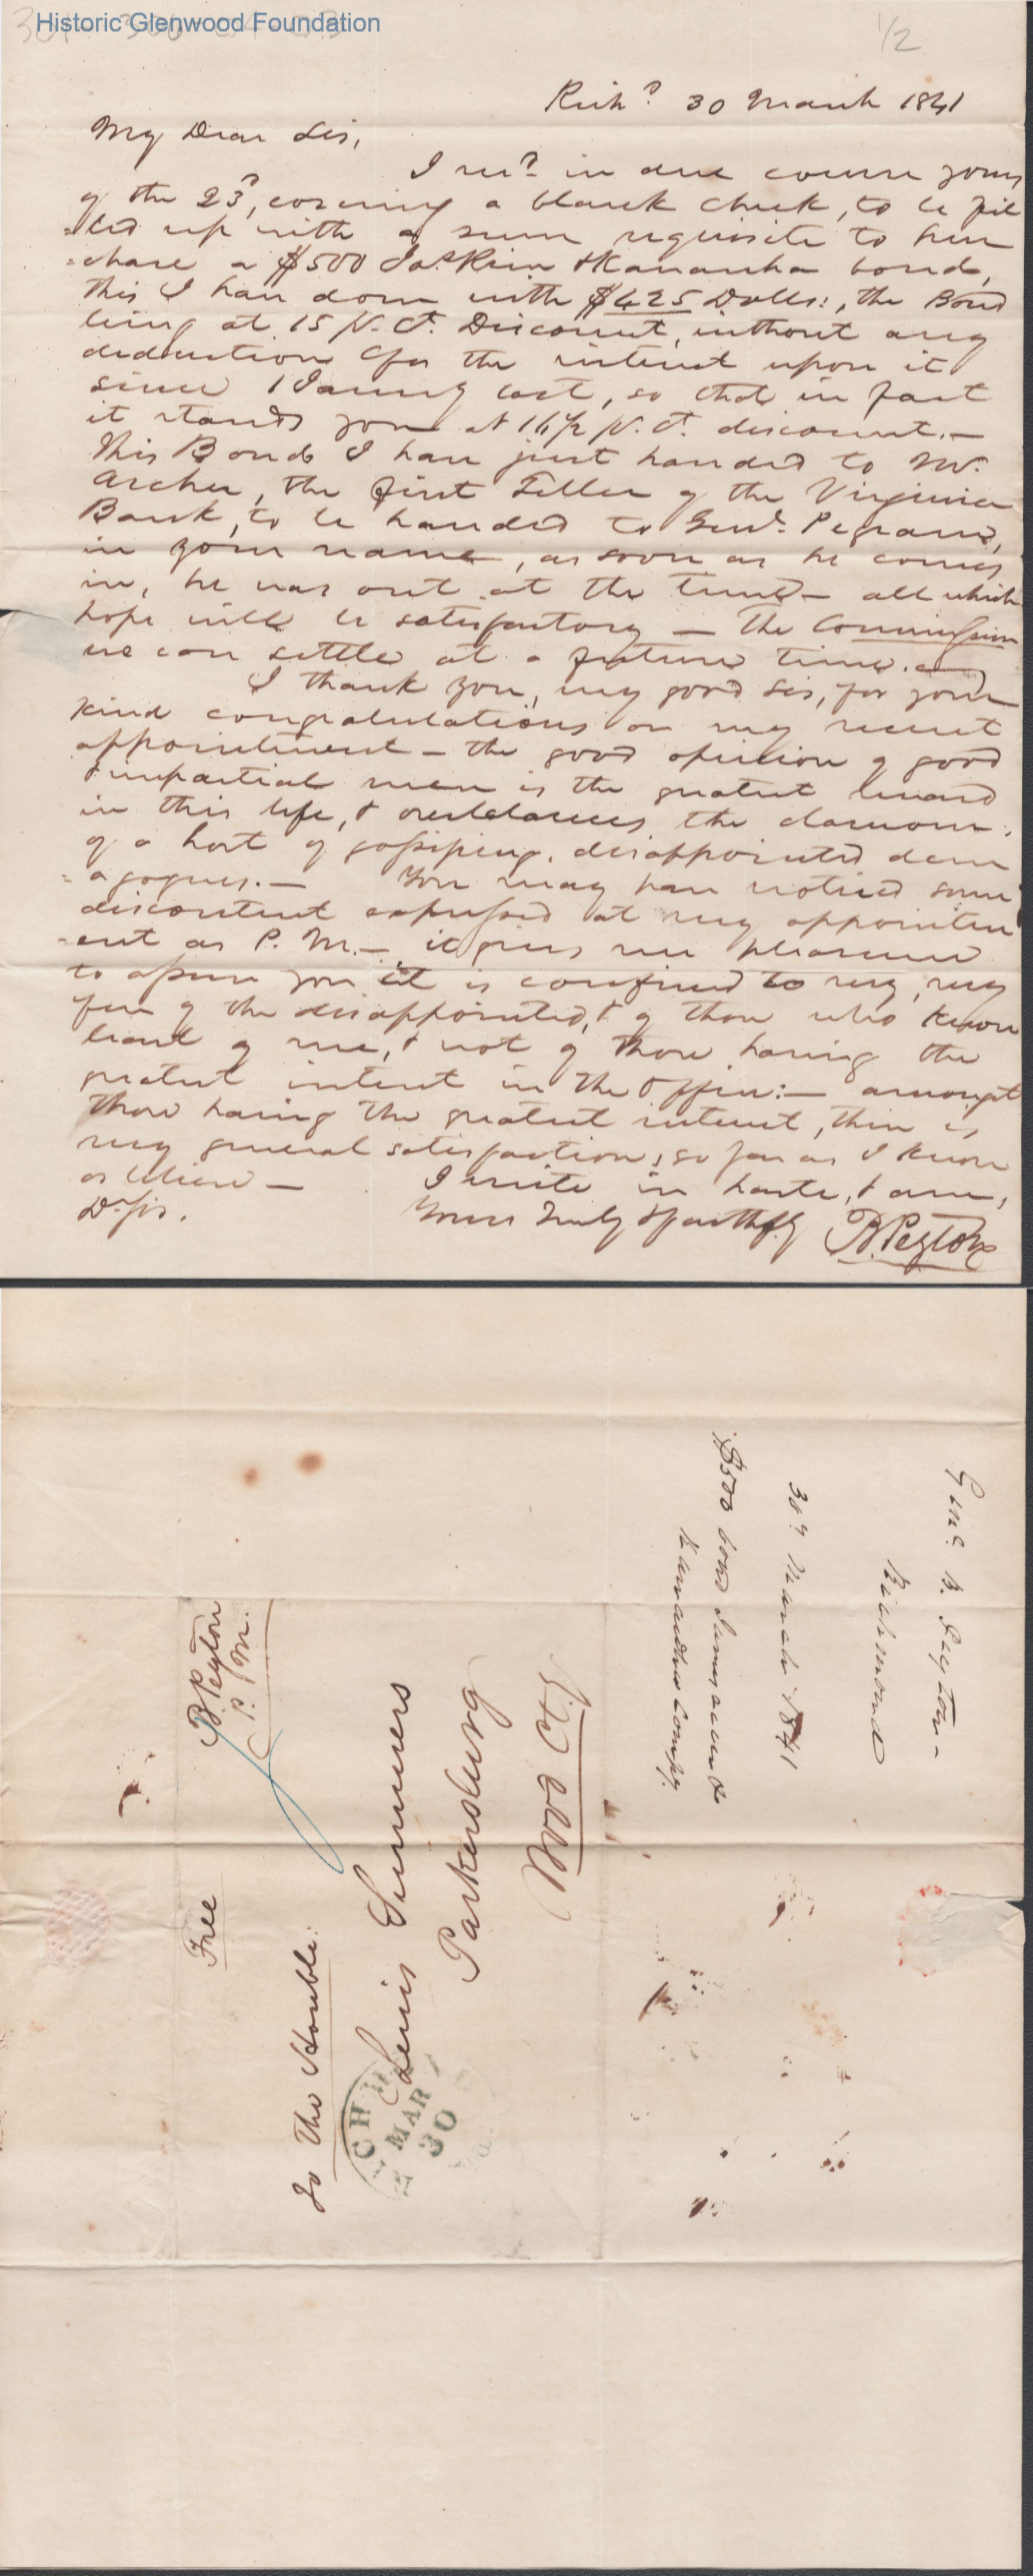 Historic Glenwood Foundation
1/2
Richd. 30 March 1841
My Dear Sir,
I recd. in due course yours
of the 23d, covering a blank check, to be fil
=led up with a sum requisite to pur
=chase a $500 Jas. River & Kanawha bond,
this I have done with $425 Dolls:, the Bond
being at 15 P. Ct. Discount, without any
deduction for the interest upon it
since 1 Janury last, so that in fact
it stands you at 16½ P. Ct. discount.—
This Bond I have just handed to Mr.
Archer, the first Teller of the Virginia
Bank, to be handed to Genl. Pegram,
in your name, as soon as he comes
in, he was out at the time — all which
hope will be satisfactory — The Commission
we can settle at a future time.
I thank you, my good sir, for your
kind congratulations on my recent
appointment — the good opinion of good
& impartial men is the greatest reward
in this life, & overbalances the clamour
of a host of gossiping, disappointed dem
=agogues.— You may have noticed some
discontent expressed at my appointm
=ent as P. M. — it gives me pleasure
to assure you it is confined to very, very
few of the disappointed, & of those who know
least of me, & not of those having the
greatest interest in the Office: — amongst
those having the greatest interest, there is
very general satisfaction, so far as I know
or believe — I write in haste, & am,
Dr Sir. Yours truly & faithfly B. Peyton
Genl. B. Peyton —
Richmond
30th March 1841
$500 bond James River &
Kanawha Compy.
B. Peyton
P. M.
Free
To The Honble:
Lewis Summers
Parkersburg
Wood Ct.
RICHM
MAR
30
Va.